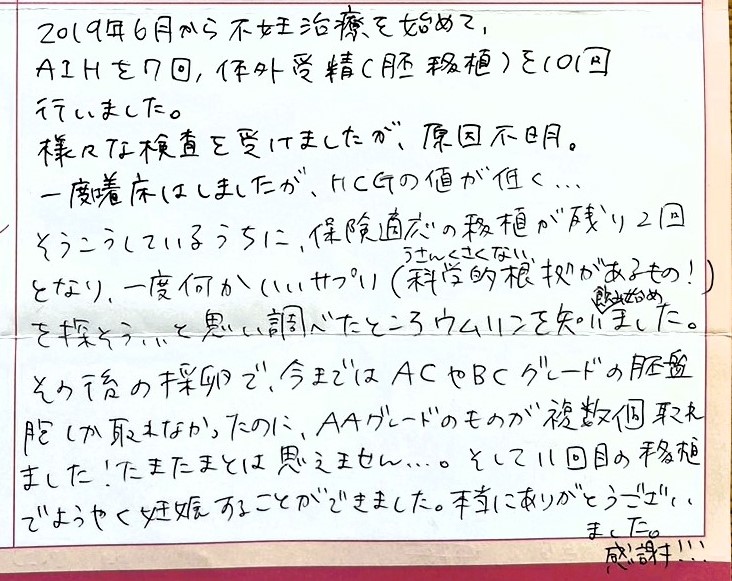 2019年6月から不妊治療を始めて、
AIHを7回、体外受精(胚移植)を10回
行いました。
様々な検査を受けましたが、原因不明。
一度着床はしましたが、HCGの値が低く…
そうこうしているうちに、保険適応の移植が残り2回
うさんくさくない
となり、一度何かいいサプリ(科学的根拠があるもの!)
飲み始め
を探そう…と思い調べたところウムリンを知りました。
その後の採卵で、今まではACやBCグレードの胚盤
胞しか取れなかったのに、AAグレードのものが複数個取れ
ました!たまたまとは思えません…。そして11回目の移植
でようやく妊娠することができました。本当にありがとうござい
ました。
感謝!!!